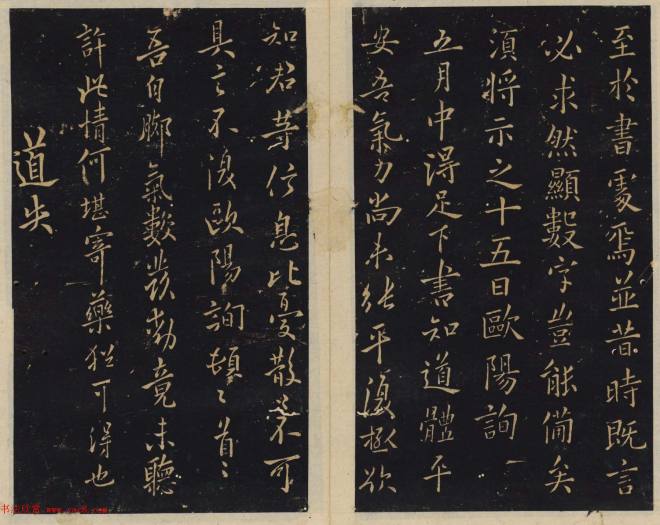 至於書處焉並昔時既言
必求然顯數字豈能備矣
須將示之十五日歐陽詢
五月中得足下書知道體平
安吾氣力尚未能平復極欲
知君等信息比憂散不可
具言不復歐陽詢頓〻首〻
吾自腳氣數發動竟未聽
許此情何堪寄藥猶可得也
道失
www.yac8.com